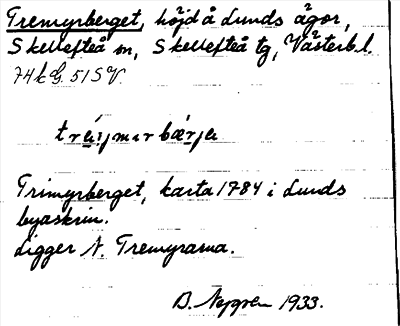 Tremyrberget, höjd å Lunds ägor,
Skellefteå sn, Skellefteå tg, Västerb.l.
74kG. 51SV.
Trimyrberget, karta 1784 i Lunds
byaskrin.
Ligger N. Tremyrarna.
1933.